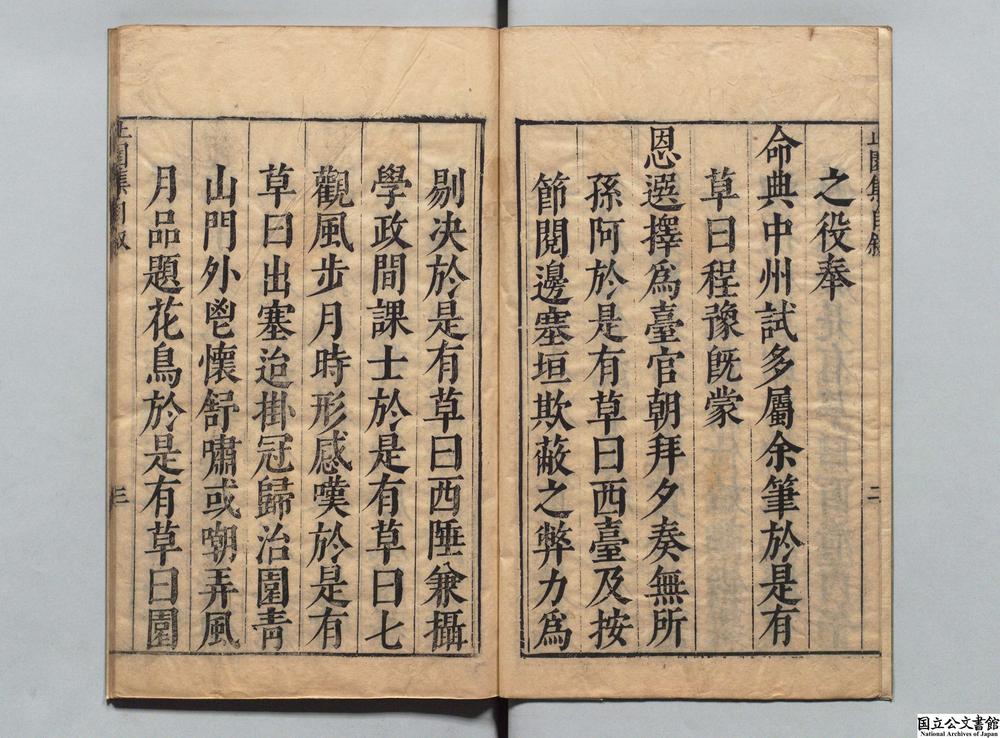 之役奉
命典中州試多屬余筆於是有
草曰程豫旣蒙
恩選擇爲臺官朝拜夕奏無所
孫阿於是有草曰西臺及按
節閱邊塞垣欺蔽之弊力爲
二
剔决於是有草曰西陲兼攝
學政間課士於是有草曰七
觀風步月時形感嘆於是有
草曰出塞迨掛冠歸治園靑
山門外鬯懷舒嘯或嘲弄風
月品題花鳥於是有草曰園
三
国立公文書館
National Archives of Japan